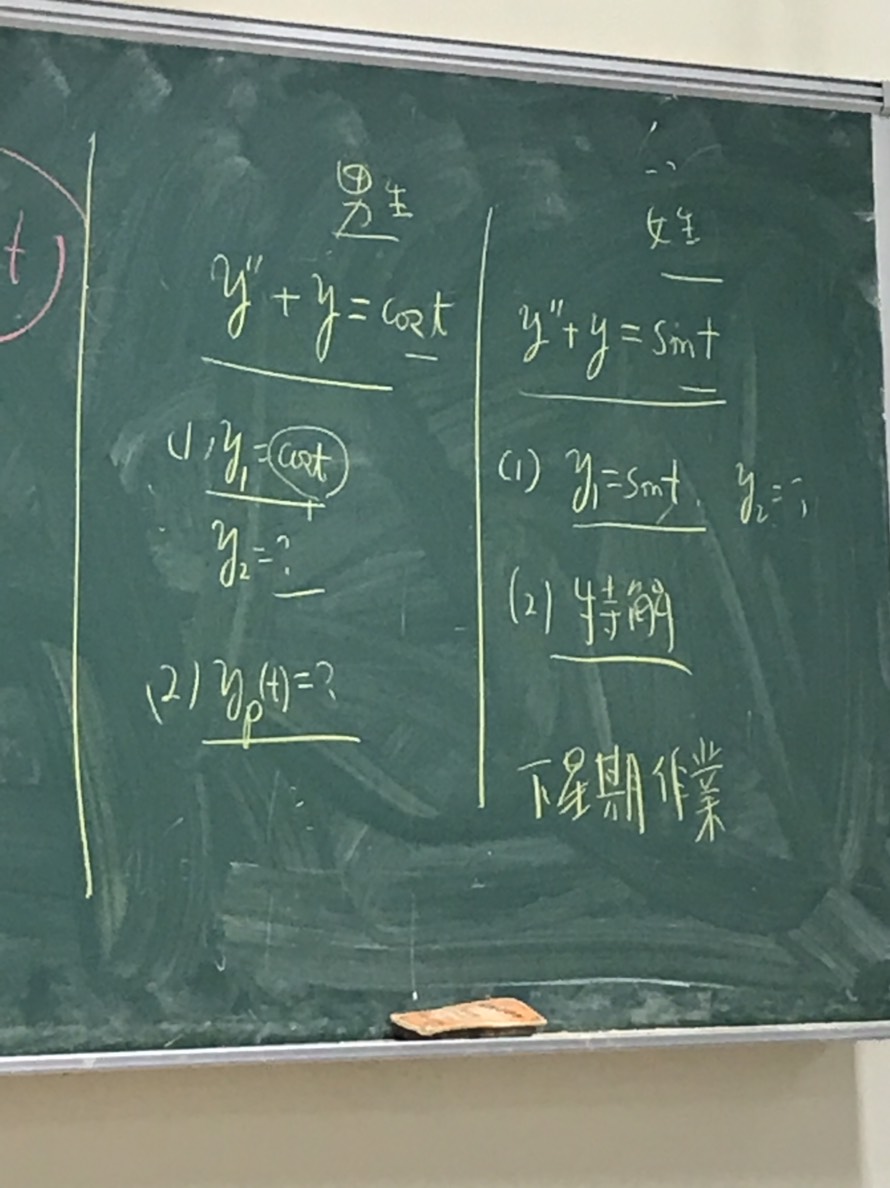 t
男生
y" + y = cost
(1) y₁ = cost
y₂ = ?
(2) yₚ(t) = ?
女生
y" + y = sint
(1) y₁ = sint, y₂ = ?
(2) 特解
下星期作業